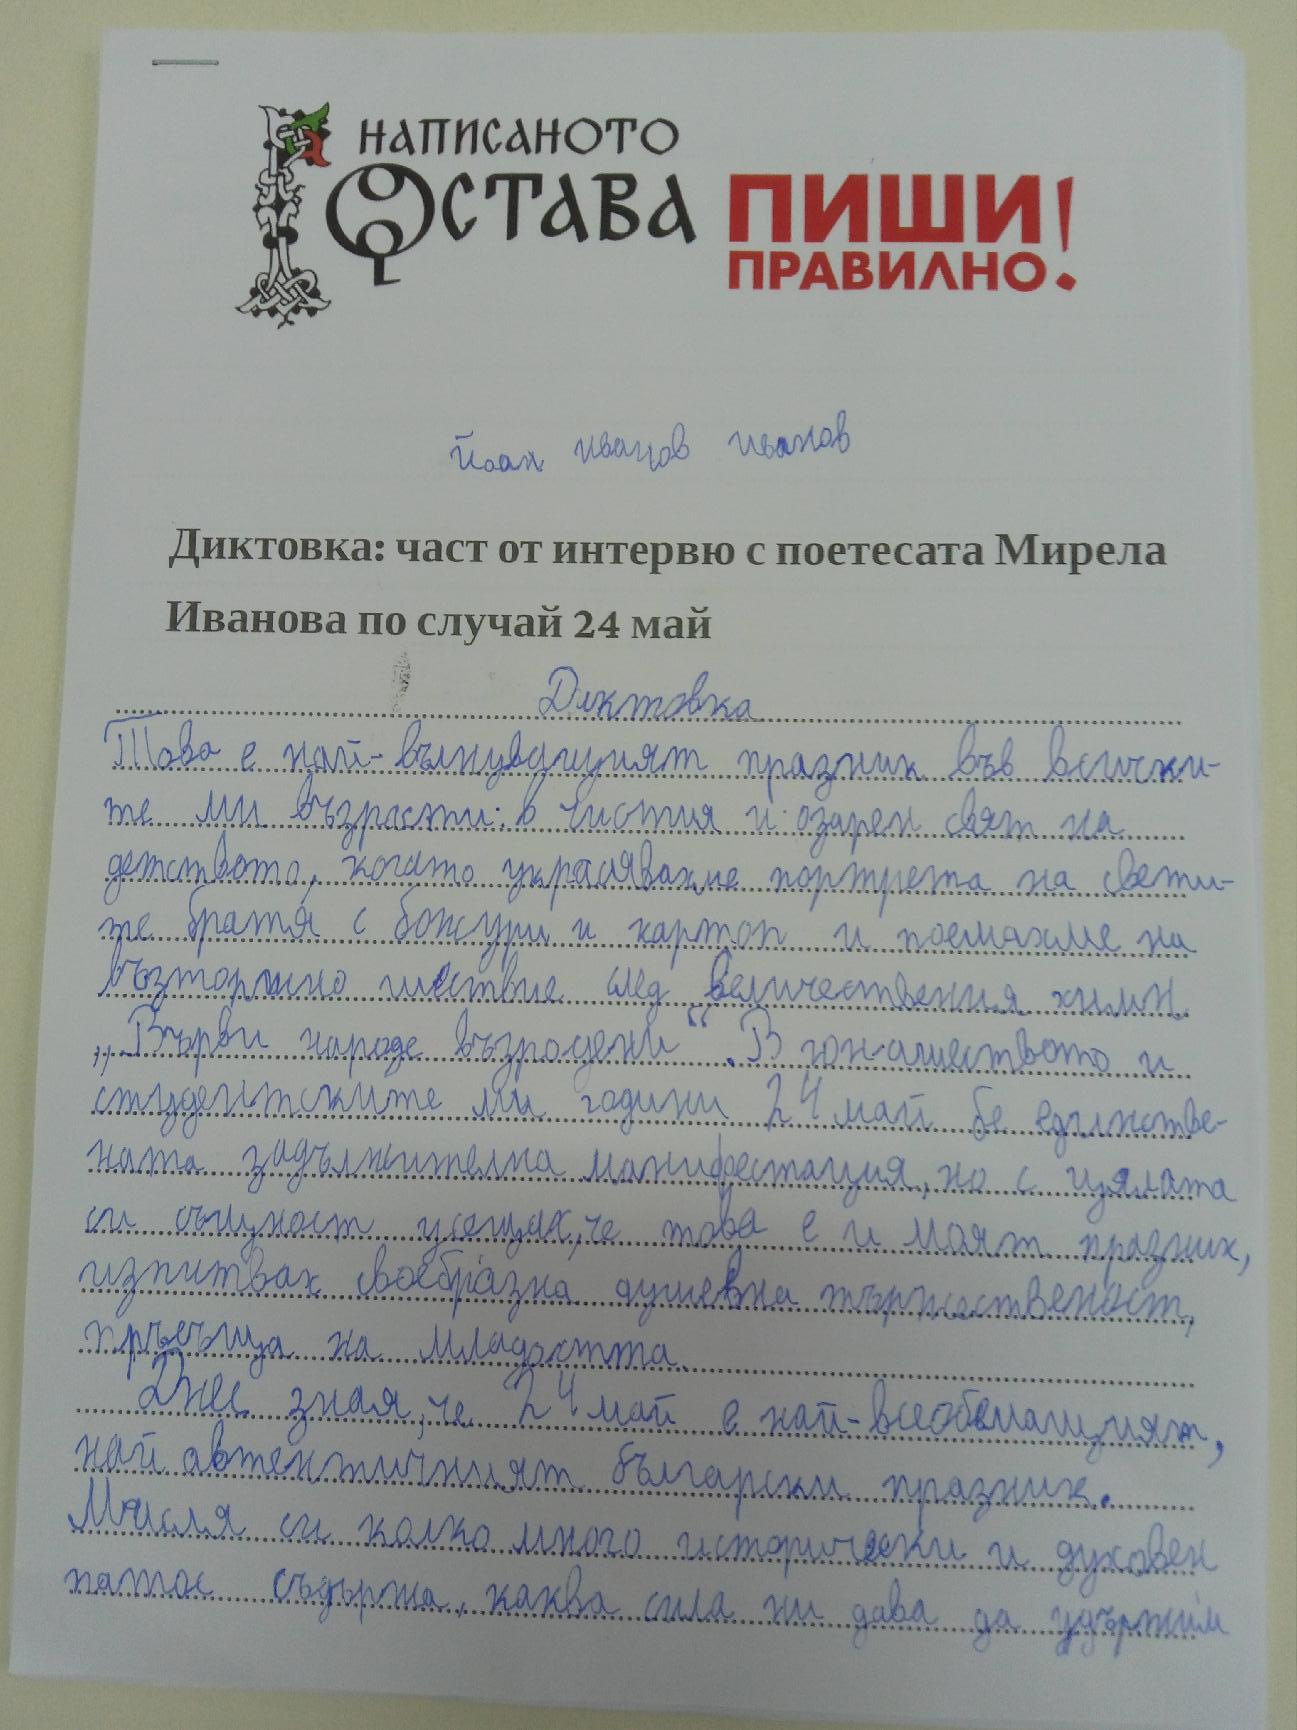 НАПИСАНОТО
ОСТАВА
ПИШИ
ПРАВИЛНО!
Йоан Иванов Иванов
Диктовка: част от интервю с поетесата Мирела
Иванова по случай 24 май
Диктовка
Това е най-вълнуващият празник във всички-
те ми възрасти: в чистия и озарен свят на
детството, когато украсявахме портрета на свети-
те братя с божури и картон и поемахме на
възторжно шествие след величествения химн
„Върви народе възродени“. В юношеството и
студентските ми години 24 май бе единстве-
ната задължителна манифестация, но с цялата
си същност усещах, че това е и моят празник,
изпитвах своебразна душевна тържественост,
кръгъща на младостта.
Днес зная, че 24 май е най-всеобемащият,
най автентичният български празник.
Мисля си колко много исторически и духовен
патос съдържа, каква сила ни дава да удържим